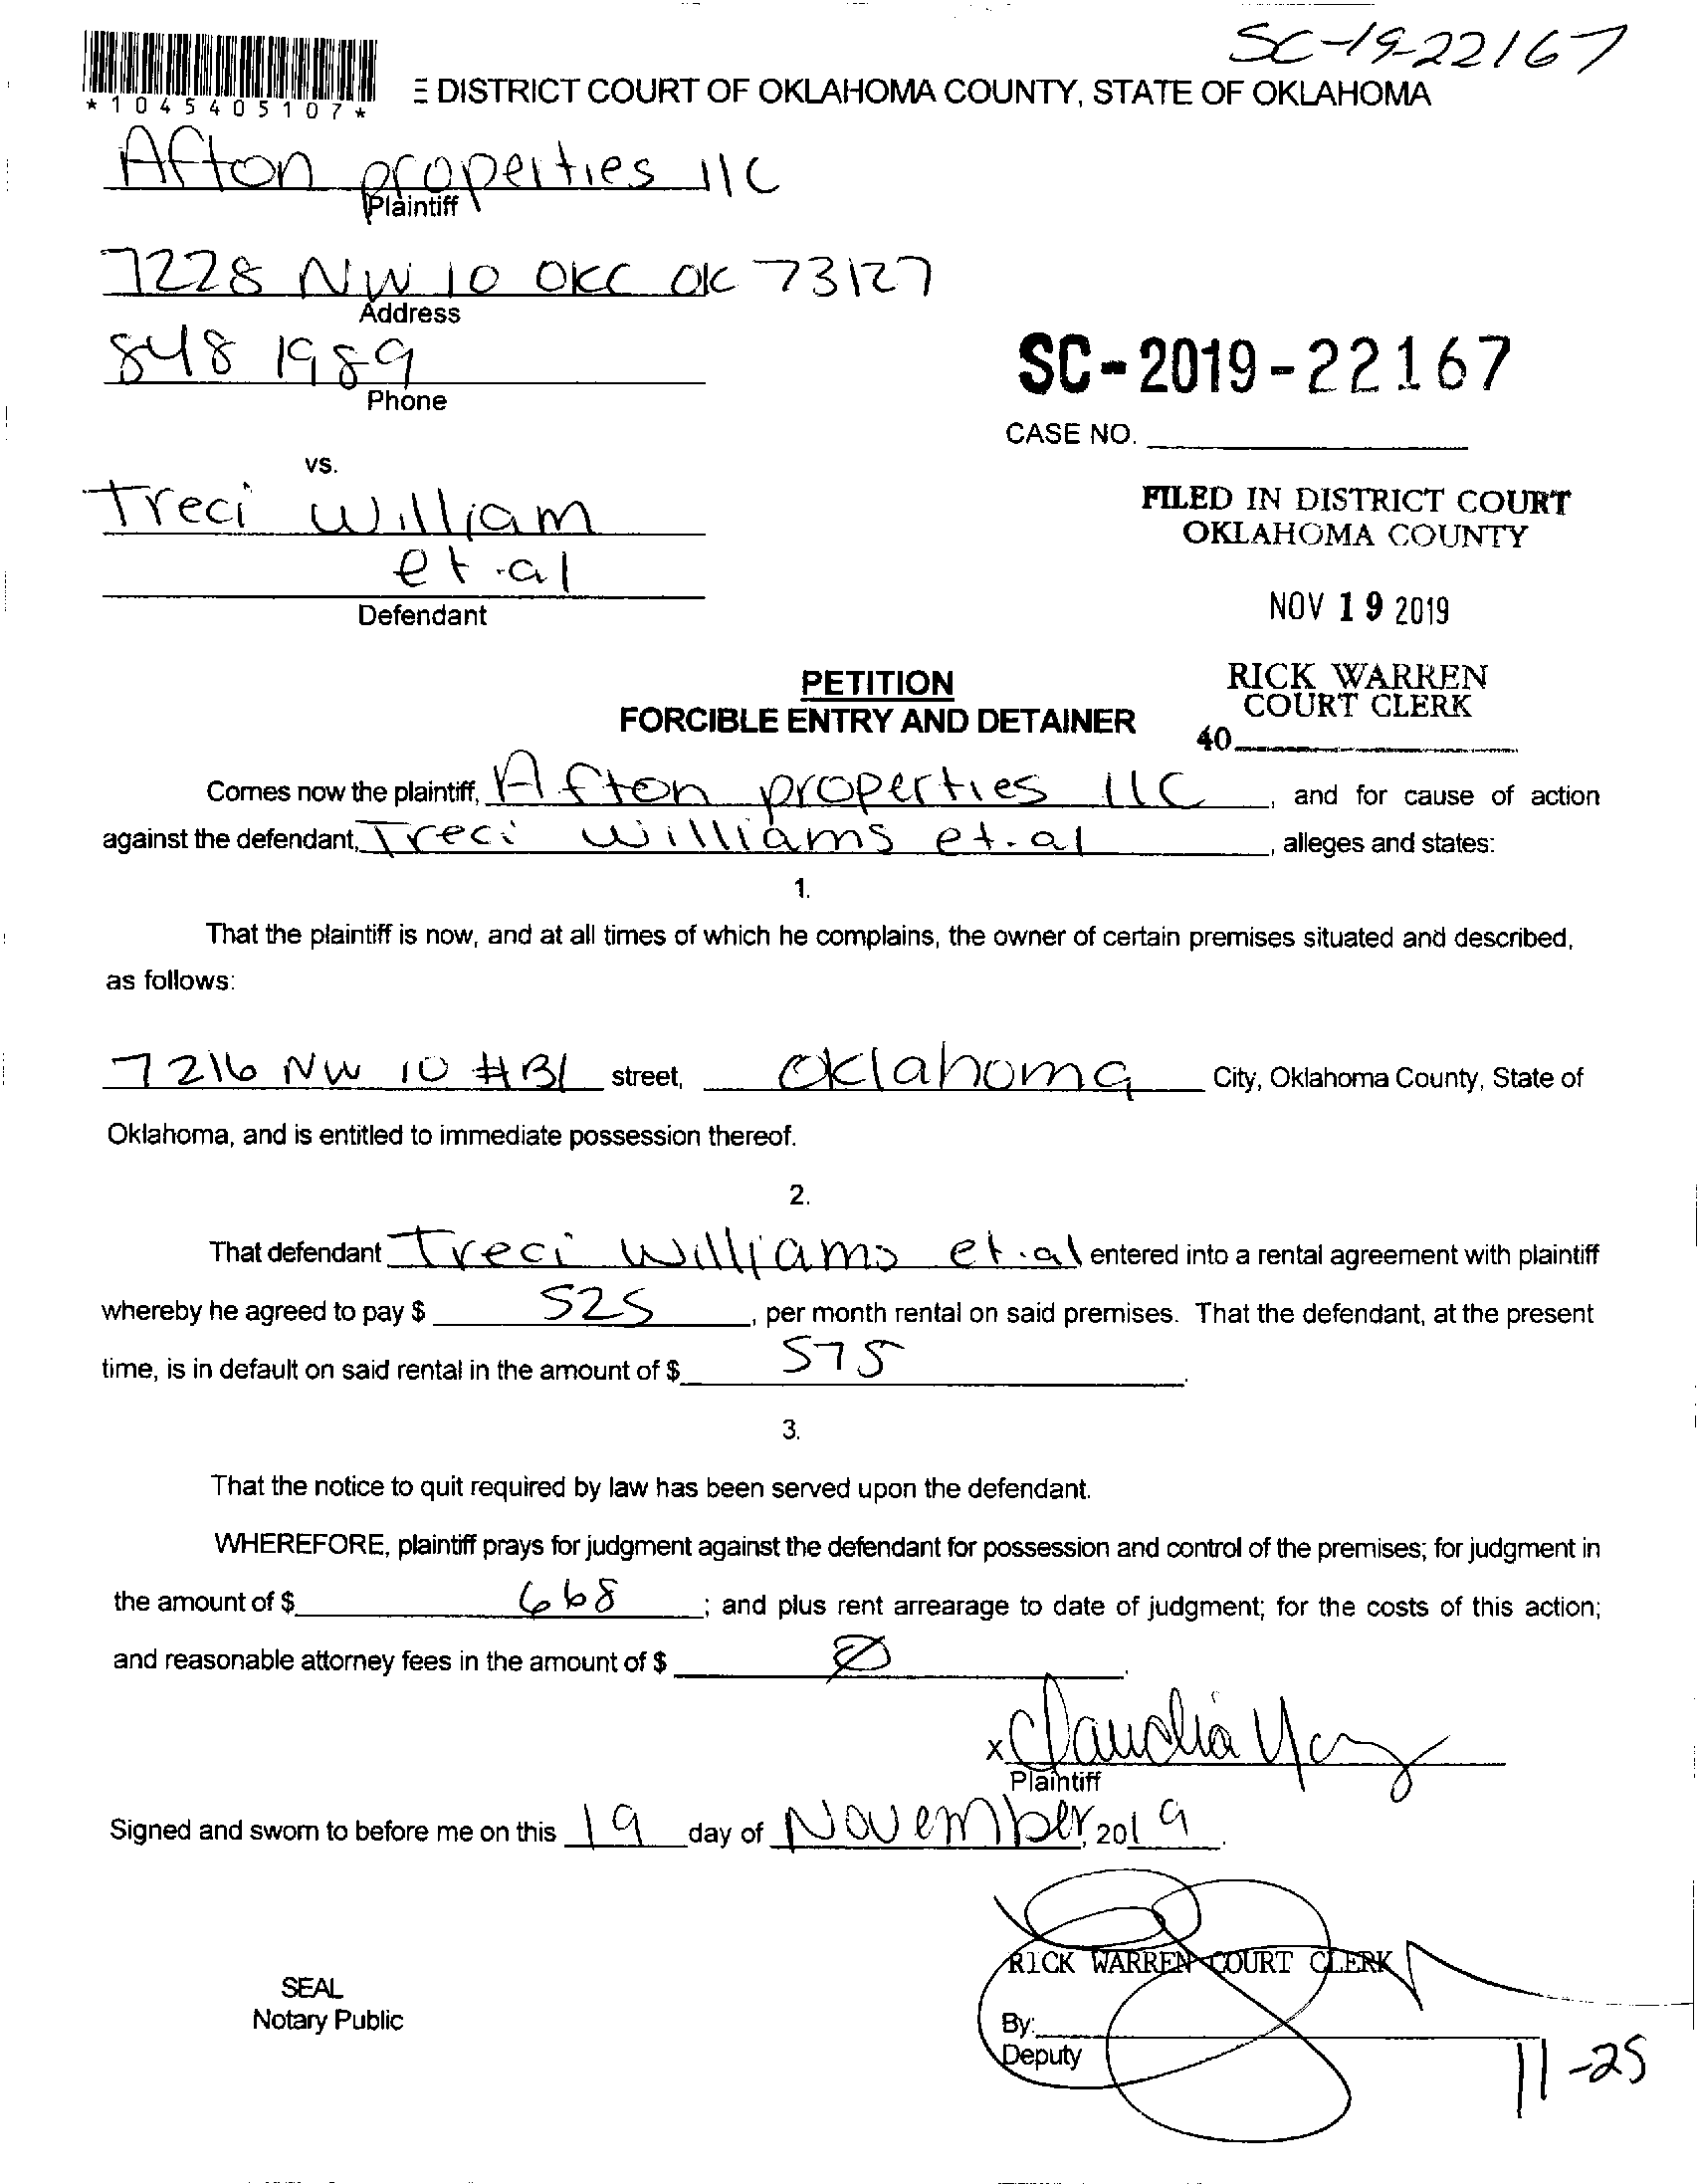 SC-19-22167
*1045405107*
E DISTRICT COURT OF OKLAHOMA COUNTY, STATE OF OKLAHOMA
Afton properties llc
Plaintiff
7228 NW 10 OKC OK 73127
Address
848 1989
Phone
SC-2019-22167
CASE NO.
vs.
Treci William
et.al
Defendant
FILED IN DISTRICT COURT
OKLAHOMA COUNTY
NOV 19 2019
RICK WARREN
COURT CLERK
40
PETITION
FORCIBLE ENTRY AND DETAINER
Comes now the plaintiff, Afton properties llc, and for cause of action
against the defendant, Treci Williams et.al, alleges and states:
1.
That the plaintiff is now, and at all times of which he complains, the owner of certain premises situated and described,
as follows:
7216 NW 10 #B1 street, Oklahoma City, Oklahoma County, State of
Oklahoma, and is entitled to immediate possession thereof.
2.
That defendant Treci Williams et.al entered into a rental agreement with plaintiff
whereby he agreed to pay $ 525, per month rental on said premises. That the defendant, at the present
time, is in default on said rental in the amount of $ 575.
3.
That the notice to quit required by law has been served upon the defendant.
WHEREFORE, plaintiff prays for judgment against the defendant for possession and control of the premises; for judgment in
the amount of $ 668; and plus rent arrearage to date of judgment; for the costs of this action;
and reasonable attorney fees in the amount of $ Ø.
x Claudia
Plaintiff
Signed and sworn to before me on this 19 day of November, 2019.
RICK WARREN COURT CLERK
SEAL
Notary Public
By:
Deputy
11-25